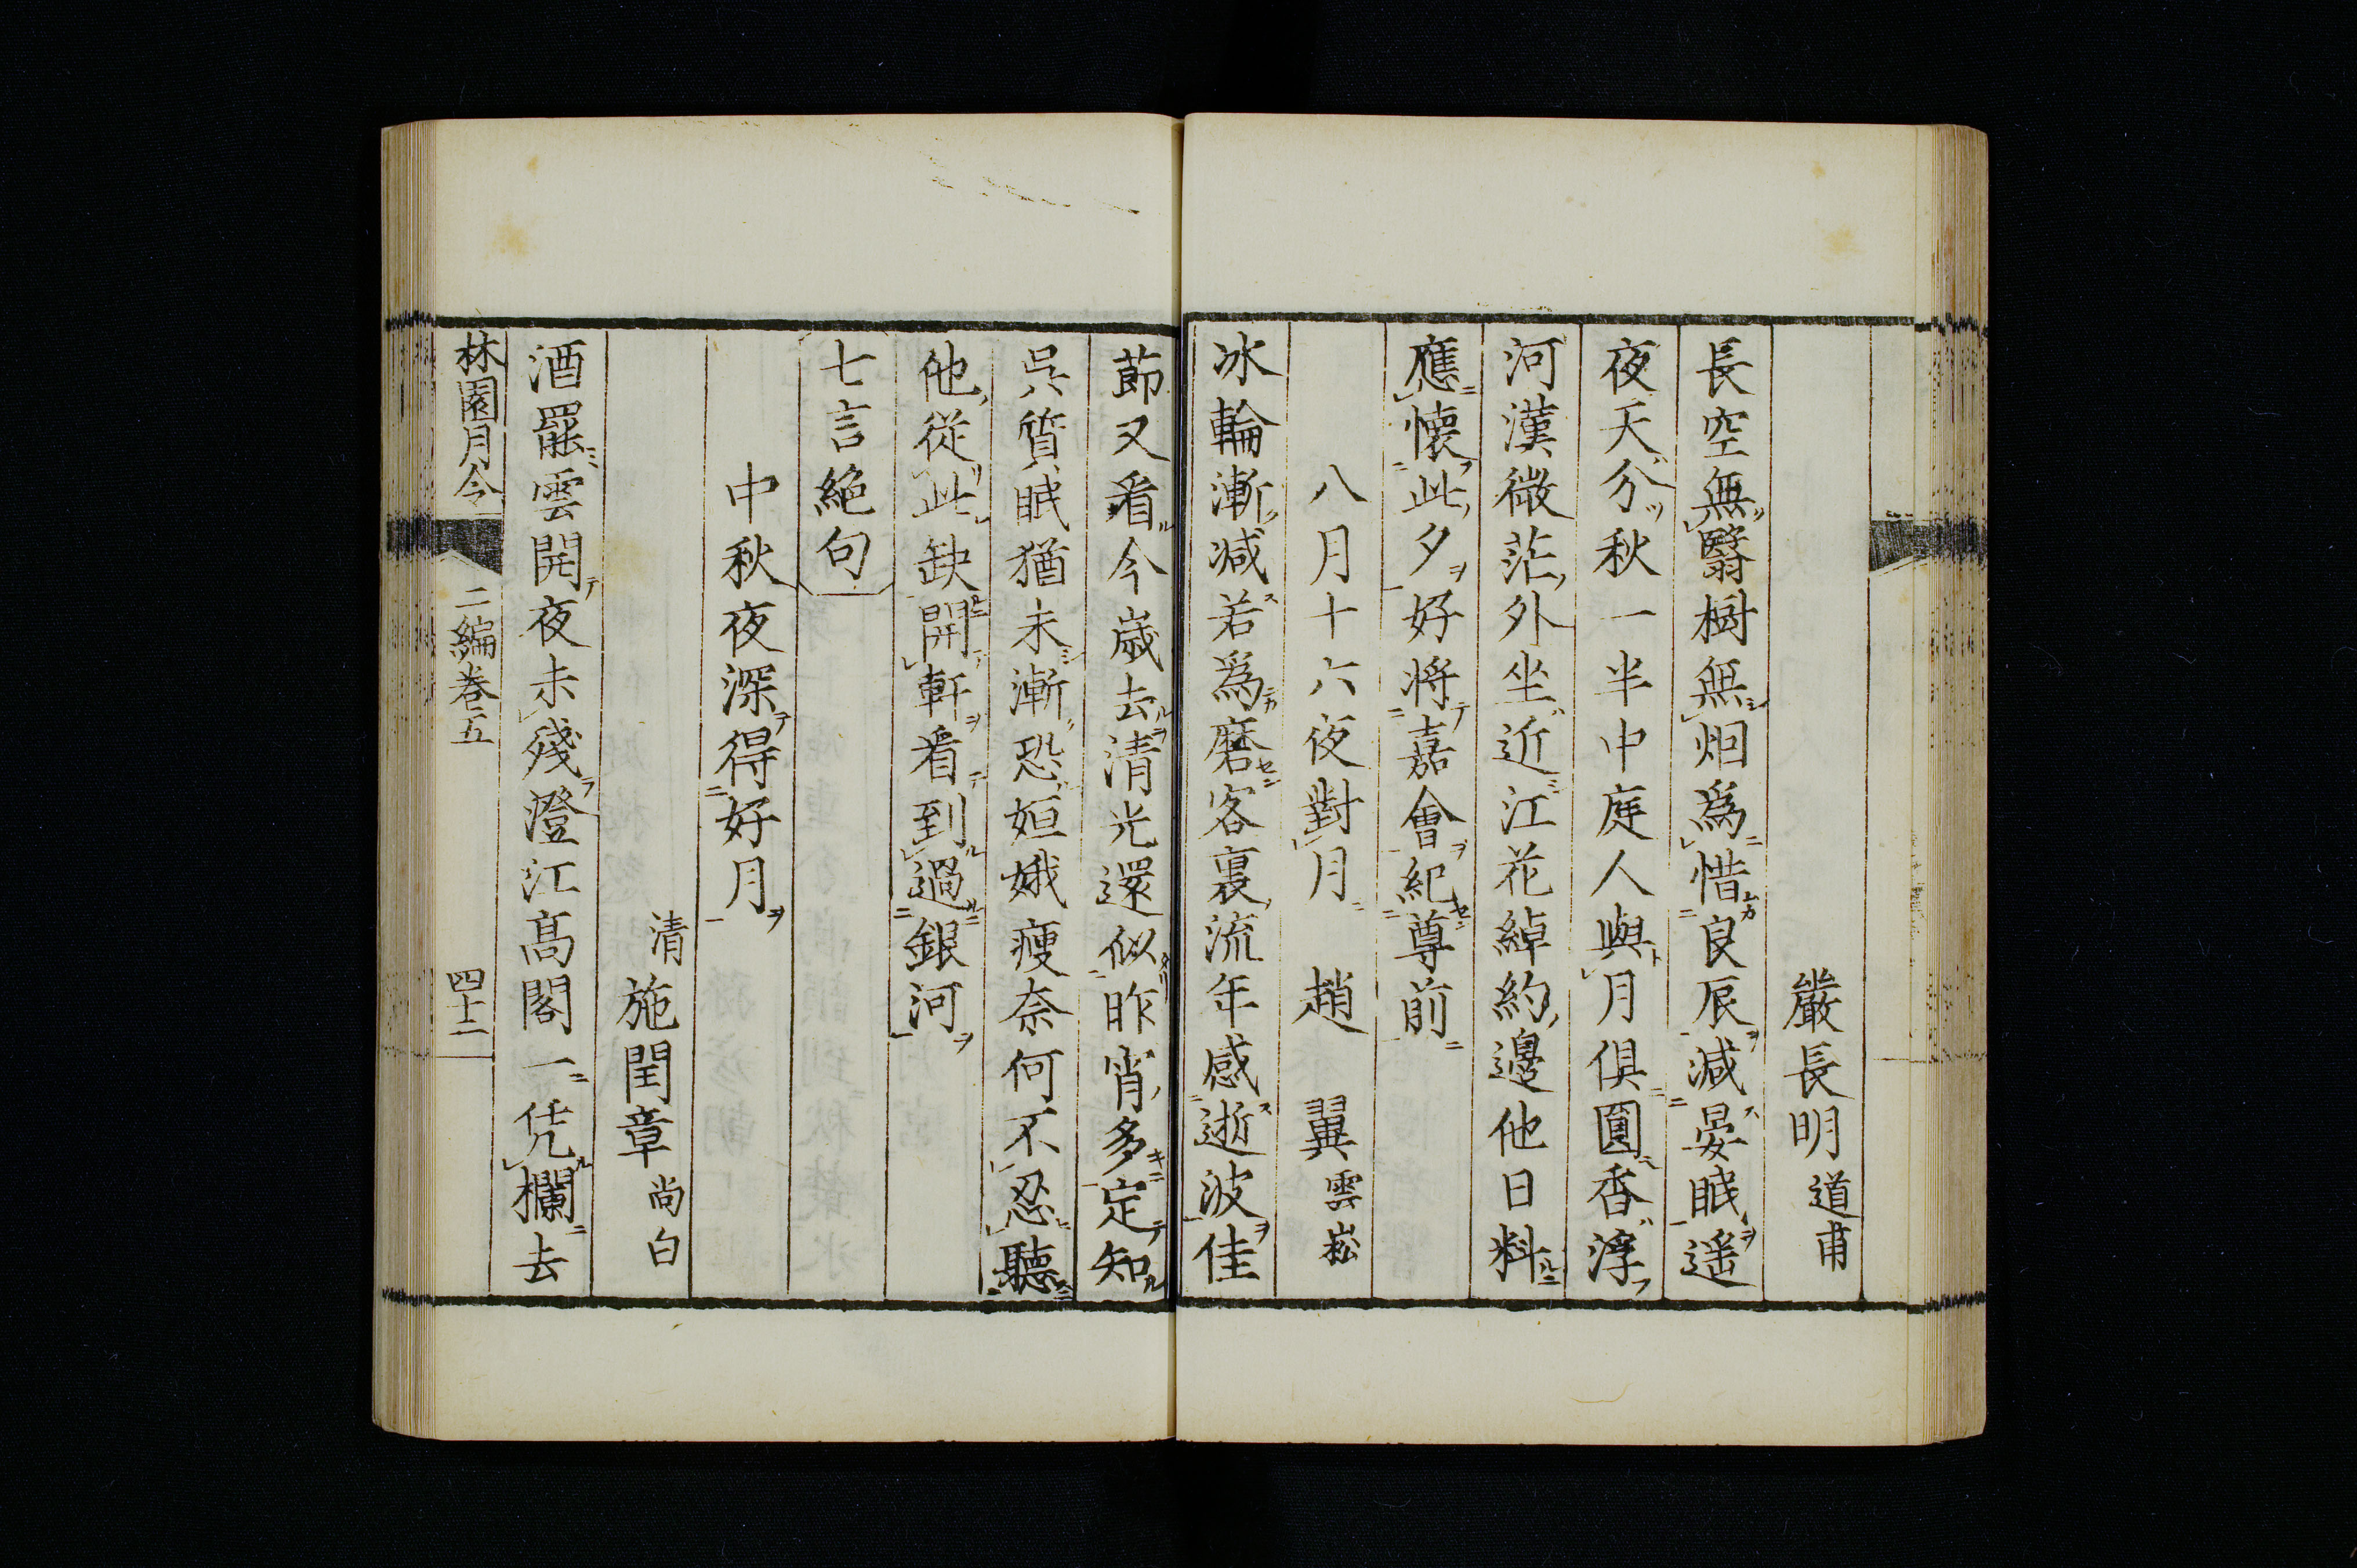 嚴長明道甫
長空無翳樹無烟爲惜良辰減晏眠遥
夜天分秋一半中庭人與月俱圓香浮
河漢微茫外坐近江花綽約邊他日料
應懷此夕好將嘉會紀尊前
八月十六夜對月 趙 翼雲崧
冰輪漸減若爲磨客裏流年感逝波佳
節又看今歲去清光還似昨宵多定知
吳質眠猶未漸恐姮娥瘦奈何不忍聽
他從此缺開軒看到過銀河
七言絕句
中秋夜深得好月
清施閏章尚白
酒罷雲開夜未殘澄江高閣一凭欄去
林園月令 二編卷五 四十二